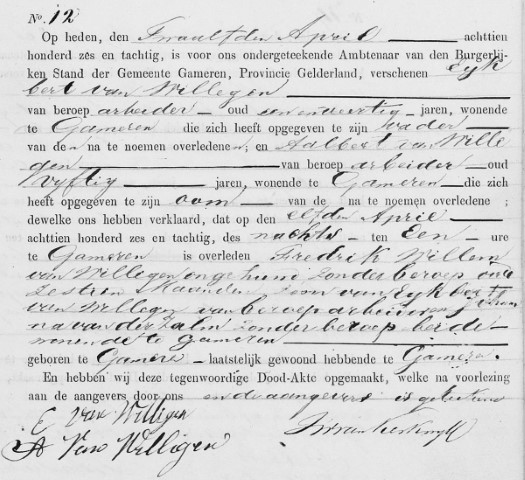 No. 12
Op heden, den Twaalfden April achttien
honderd zes en tachtig, is voor ons ondergeteekende Ambtenaar van den Burgerlij-
ken Stand der Gemeente Gameren, Provincie Gelderland, verschenen Eyk
bert van Willegen
van beroep arbeider oud zevenveertig jaren, wonende
te Gameren die zich heeft opgegeven te zijn vader
van den na te noemen overledene; en Aalbert van Wille
gen van beroep arbeider oud
Vyftig jaren, wonende te Gameren die zich
heeft opgegeven te zijn oom van de na te noemen overledene;
dewelke ons hebben verklaard, dat op den elfden April
achttien honderd zes en tachtig, des nachts ten Een ure
te Gameren is overleden Fredrik Willem
van Willegen ongehuwd zonder beroep oud
zestien Maanden zoon van Eykbert
van Willegen van beroep arbeider en Johan
na van der Zalm zonder beroep beide
wonende te Gameren
geboren te Gameren laatstelijk gewoond hebbende te Gameren.
En hebben wij deze tegenwoordige Dood-Akte opgemaakt, welke na voorlezing
aan de aangevers door ons en de aangevers is geteekend
E van Willigen
A Van Willigen